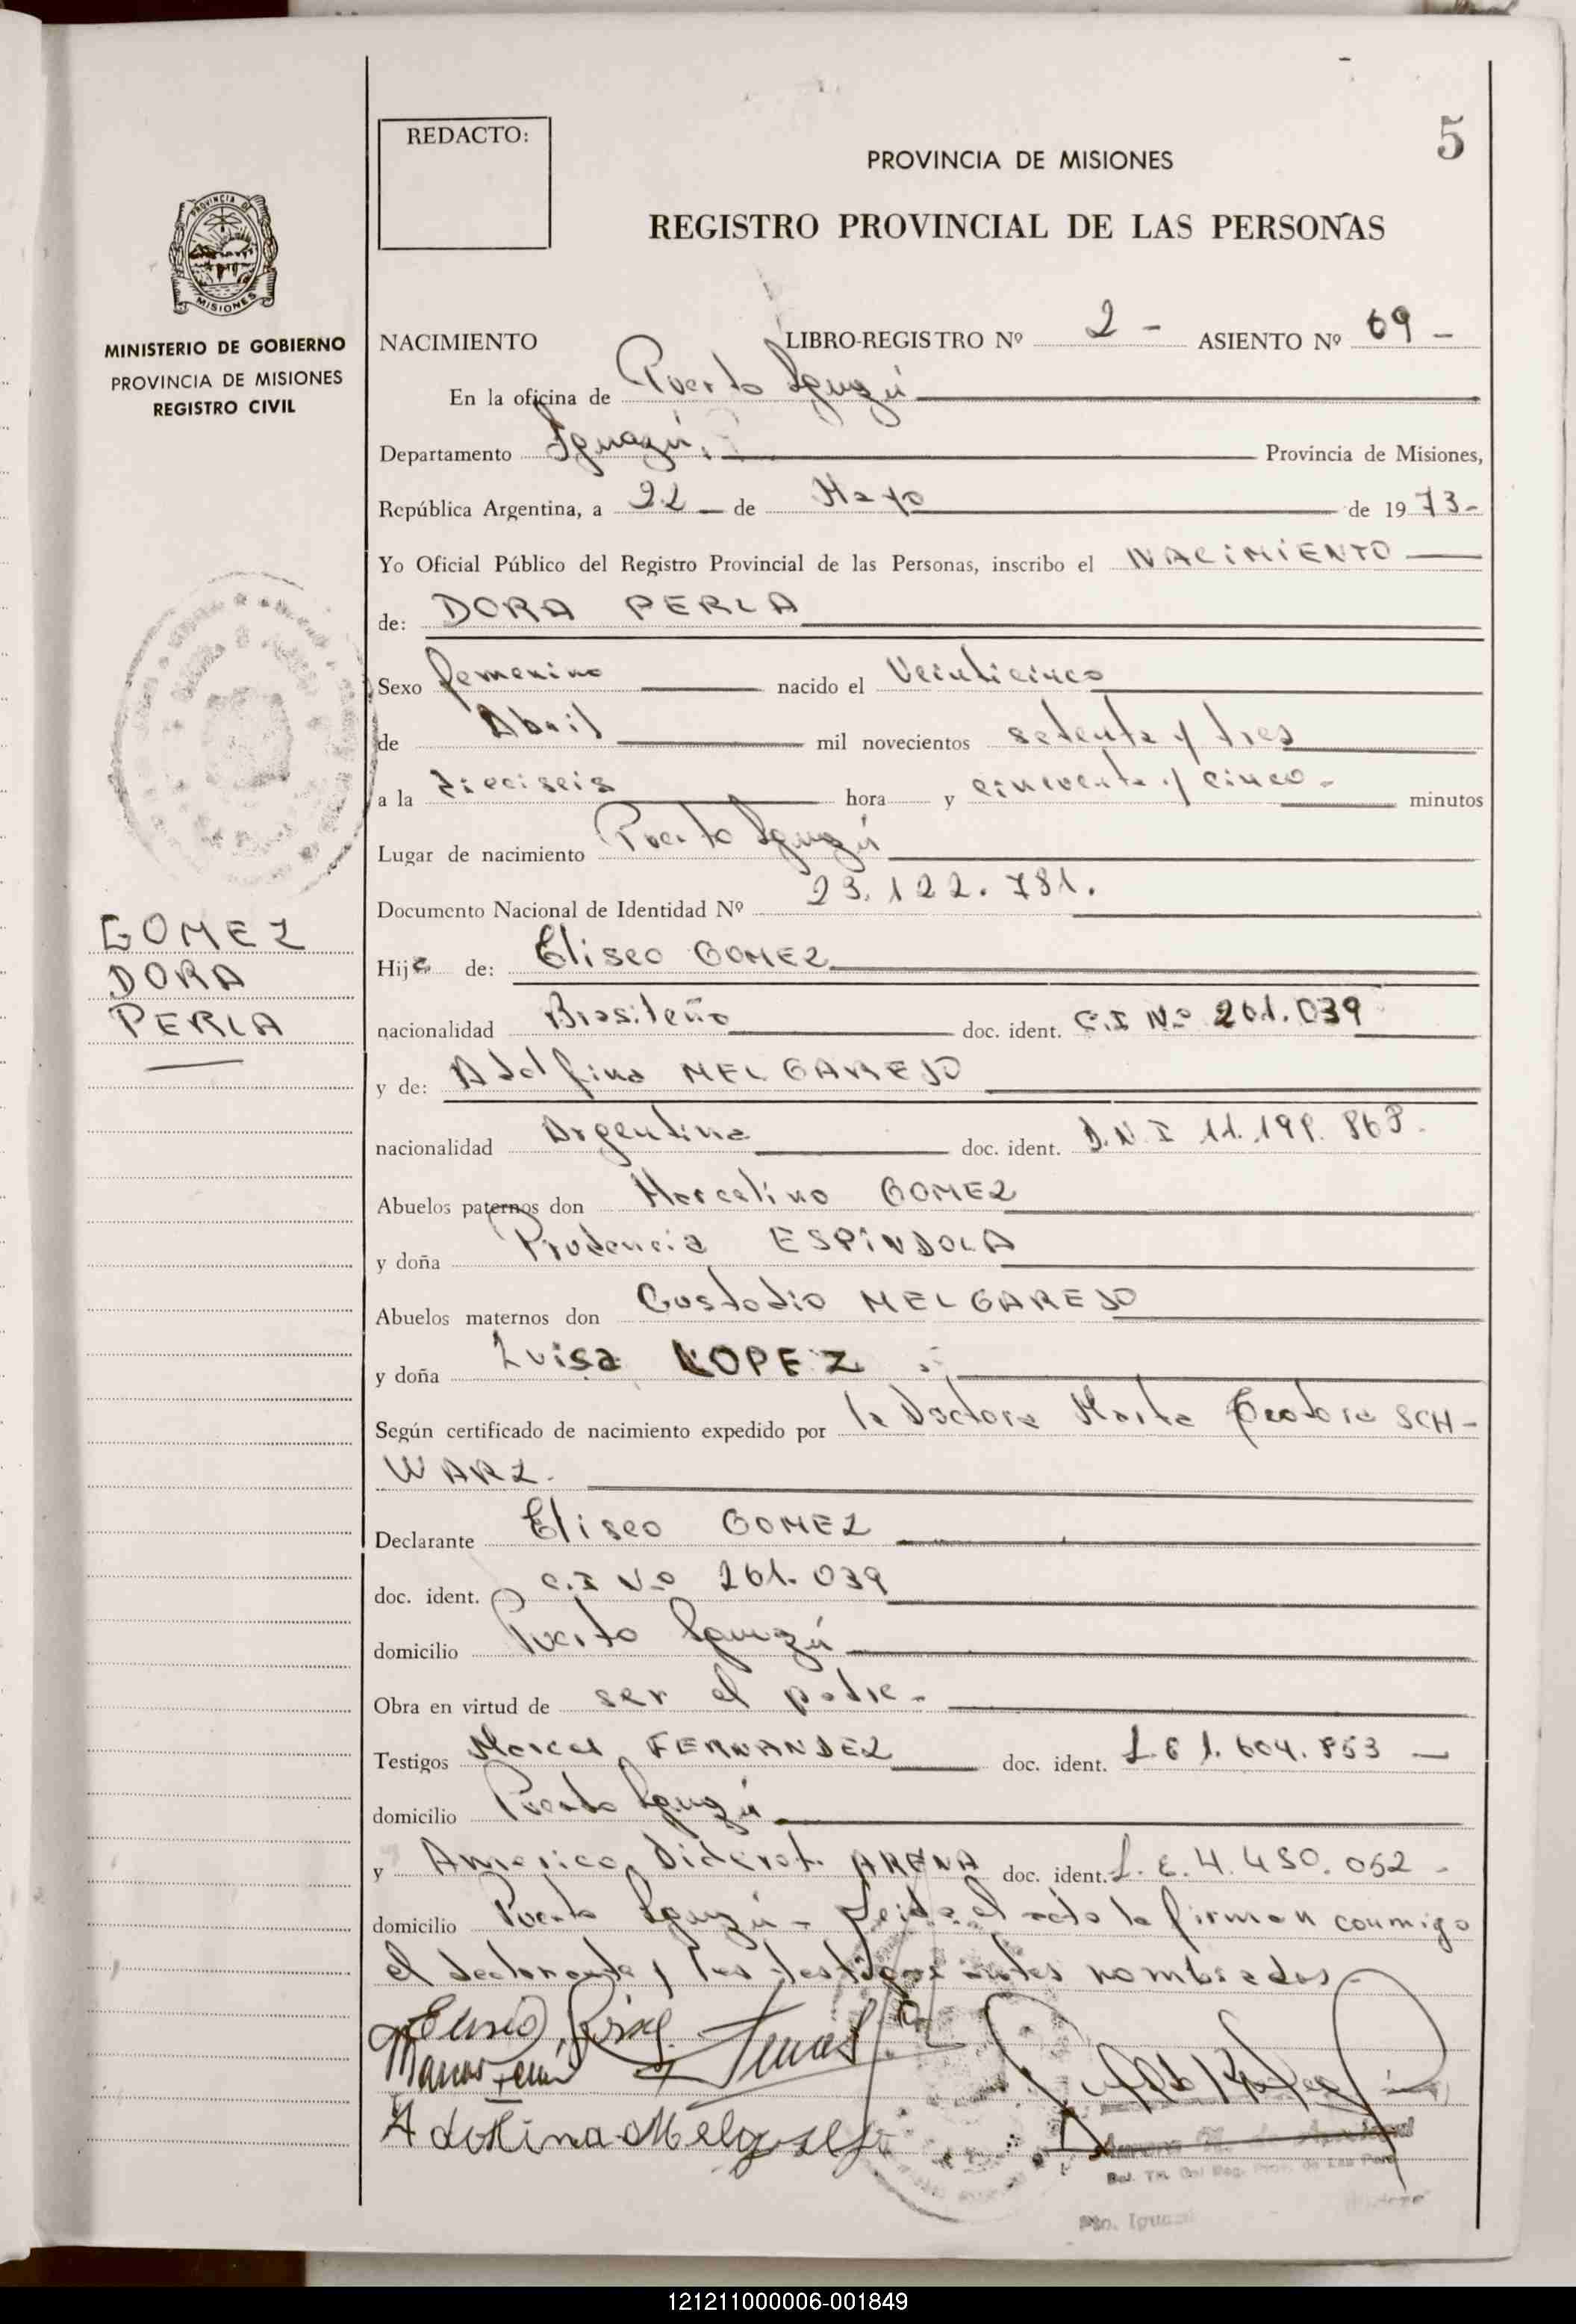 REDACTO:
5
PROVINCIA DE MISIONES
REGISTRO PROVINCIAL DE LAS PERSONAS
PROVINCIA DE
MISIONES
MINISTERIO DE GOBIERNO
PROVINCIA DE MISIONES
REGISTRO CIVIL
NACIMIENTO LIBRO-REGISTRO Nº 2 - ASIENTO Nº 69 -
En la oficina de Puerto Iguazú
Departamento Iguazú. Provincia de Misiones,
República Argentina, a 22 de Mayo de 1973-
Yo Oficial Público del Registro Provincial de las Personas, inscribo el NACIMIENTO
de: DORA PERLA
Sexo femenino nacido el Veinticinco
de Abril mil novecientos setenta y tres
a la dieciseis hora y cincuenta y cinco- minutos
Lugar de nacimiento Puerto Iguazú
Documento Nacional de Identidad Nº 23.122.781.
GOMEZ
DORA
PERLA
Hija de: Eliseo GOMEZ
nacionalidad Brasileño doc. ident. C.I Nº 261.039
y de: Adolfina MELGAREJO
nacionalidad Argentina doc. ident. D.N.I 11.199.863.
Abuelos paternos don Marcelino GOMEZ
y doña Prudencia ESPINDOLA
Abuelos maternos don Custodio MELGAREJO
y doña Luisa LOPEZ
Según certificado de nacimiento expedido por la Doctora Marta Teodora SCH-
WARZ.
Declarante Eliseo GOMEZ
doc. ident. C.I Nº 261.039
domicilio Puerto Iguazú
Obra en virtud de ser el padre-
Testigos Marcos FERNANDEZ doc. ident. L.E 1.604.853 -
domicilio Puerto Iguazú
y Americo Diderot ARENA doc. ident. L.E. 4.430.052 -
domicilio Puerto Iguazú - Leida el acta la firman conmigo
el declarante y los testigos antes nombrados-
Adolfina Melgarejo
Pto. Iguazú
121211000006-001849